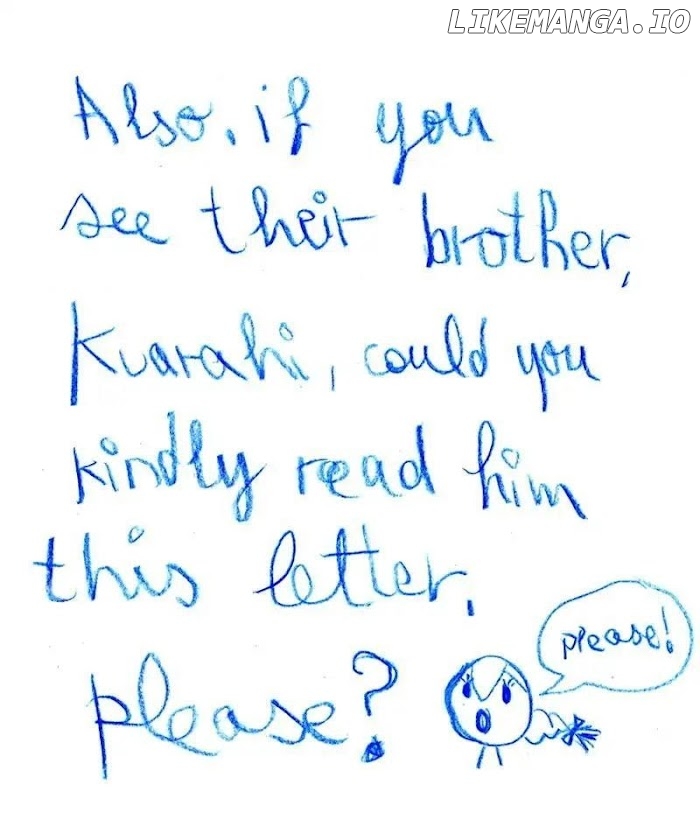 LIKEMANGA.IO
Also, if you
see their brother,
Kuarahi, could you
kindly read him
this letter,
please?
please!